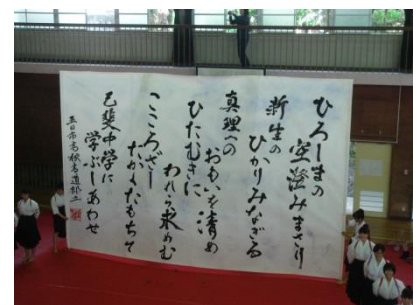 ひろしまの
空澄みまさり
新生の
ひかりみなぎる
真理への
おもいを清め
ひたむきに
われら求めむ
こころざし
たかくたもちて
己斐中学に
学ぶしあわせ
五日市高校書道部